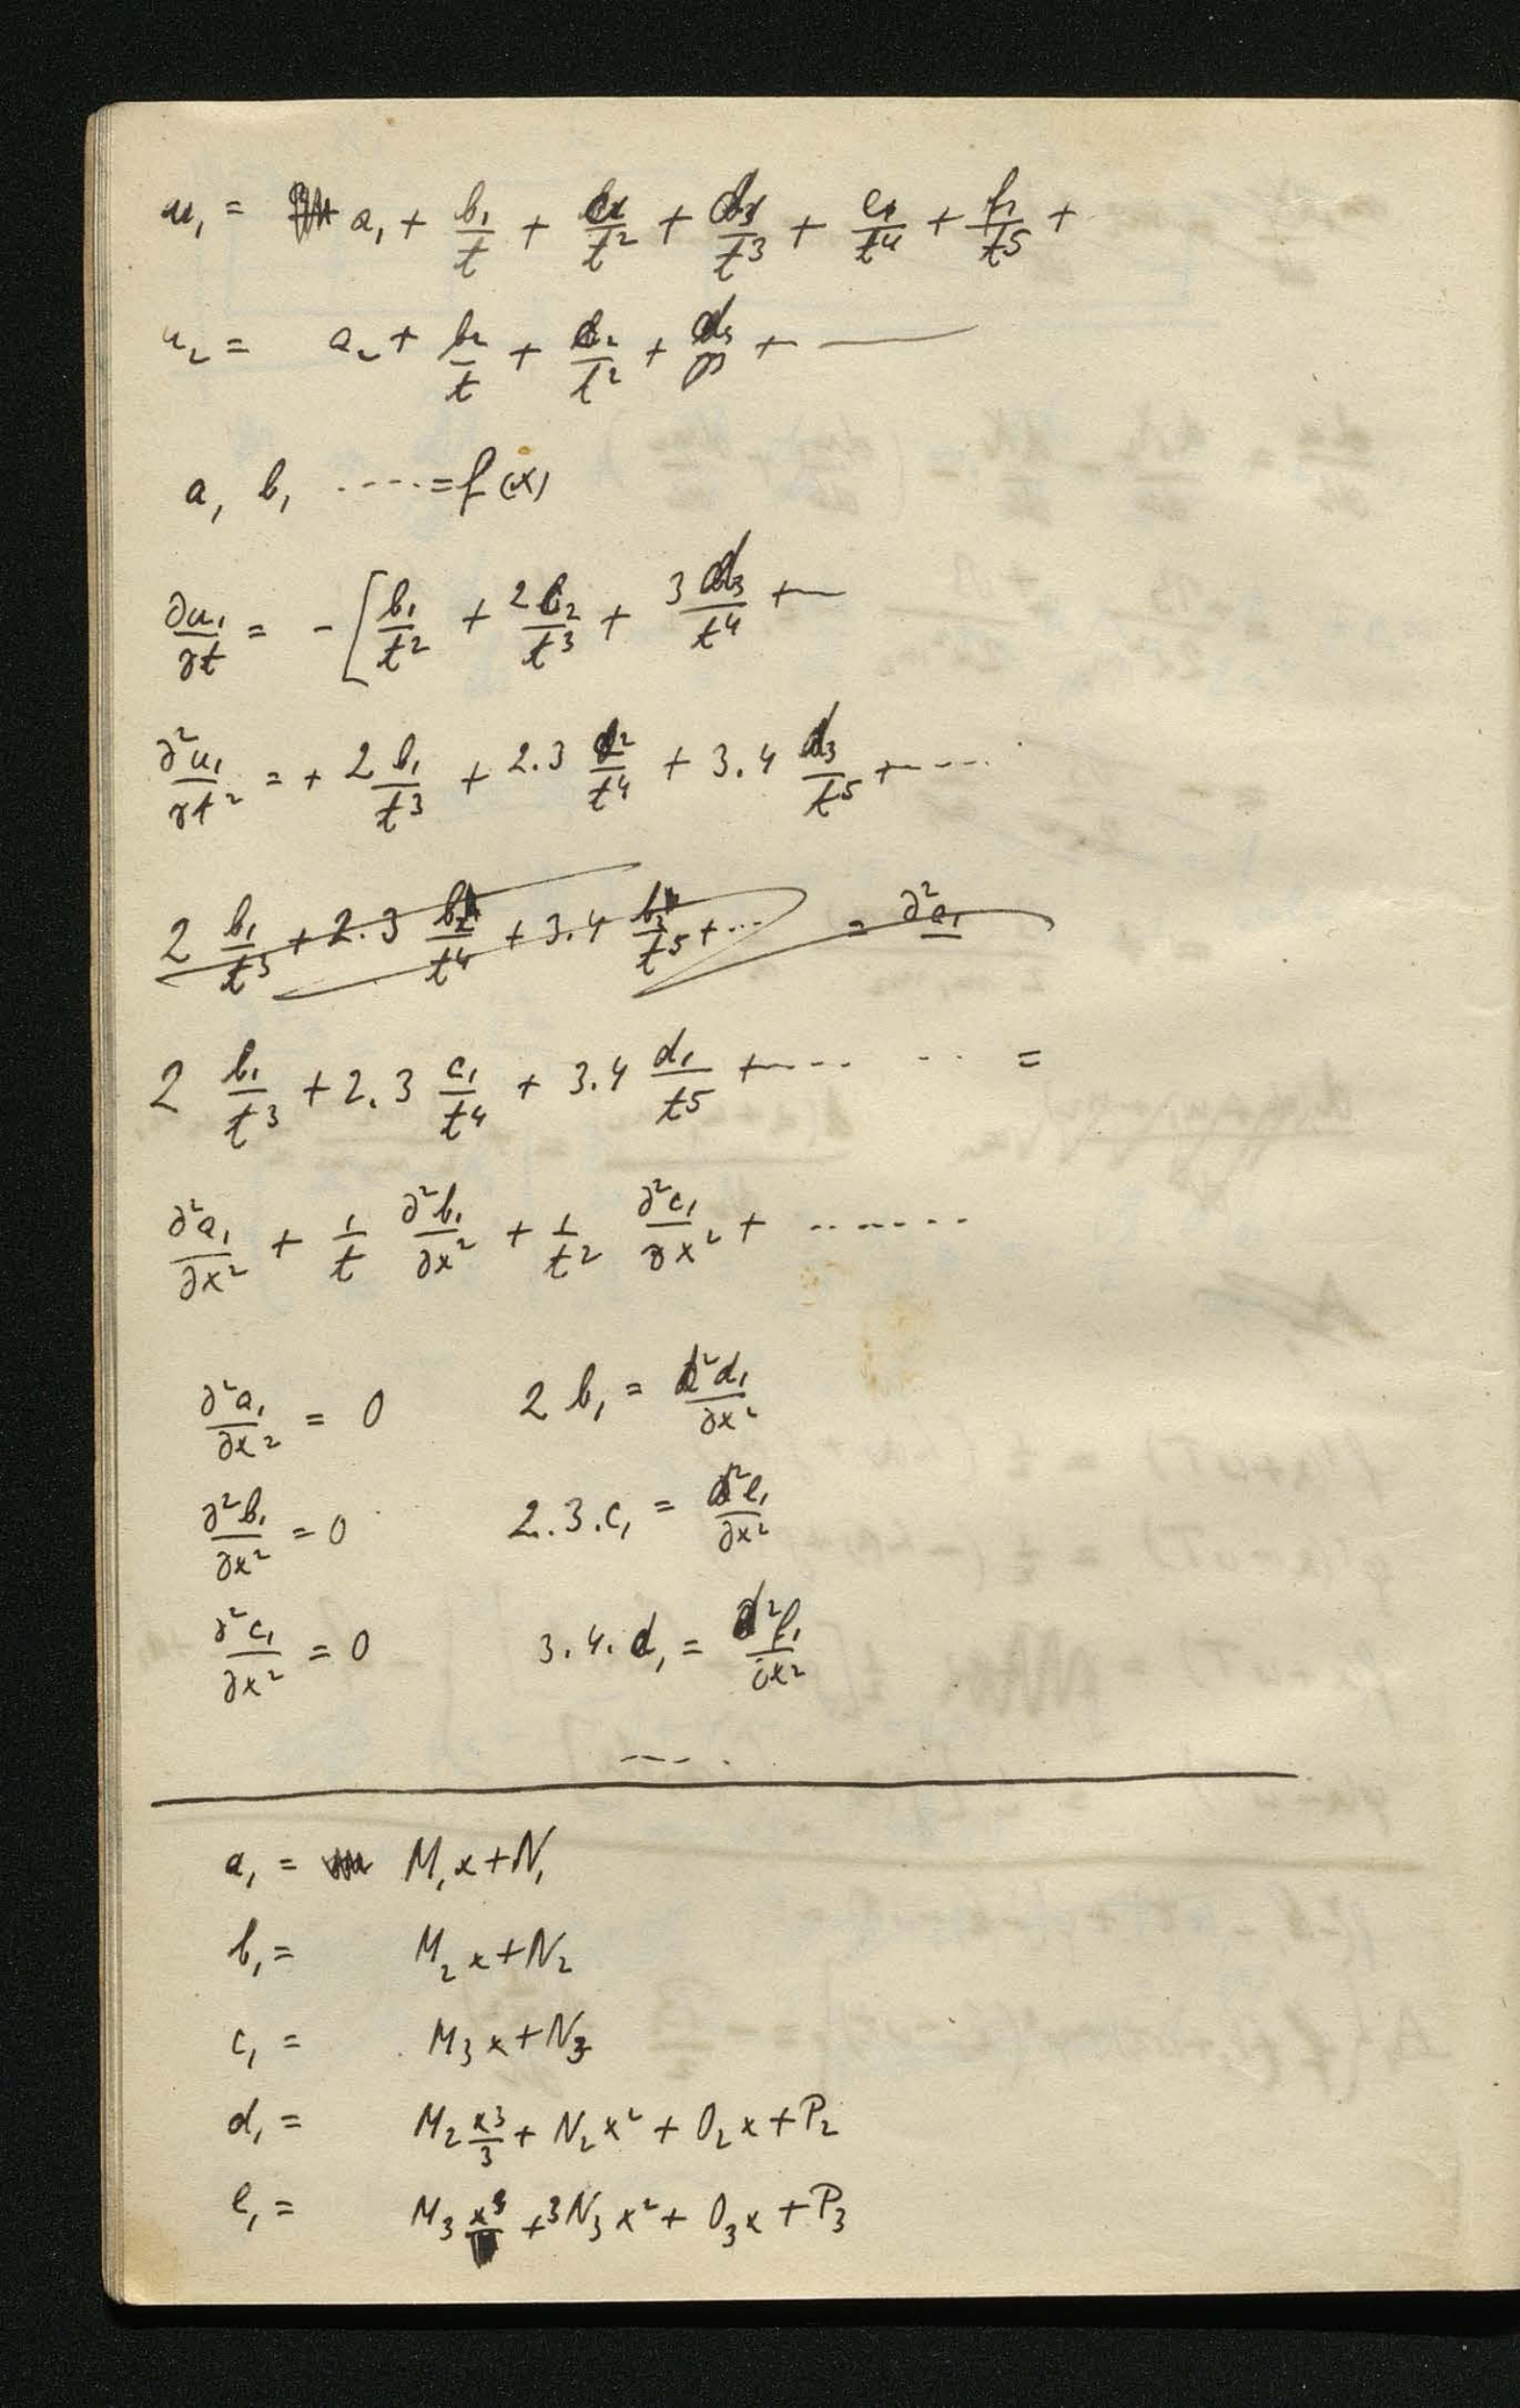 u₁ = a₁ + b₁/t + c₁/t² + d₁/t³ + e₁/t⁴ + f₁/t⁵ +
u₂ = a₂ + b₂/t + c₂/t² + +
a₁ b₁ ---- = f(x)
∂u₁/∂t = - [ b₁/t² + /t³ + 3 /t⁴ +
∂²u₁/∂t² = + 2 b₁/t³ + 2.3 /t⁴ + 3.4 d₃/t⁵ + ----
2 b₁/t³ + 2.3 /t⁴ + 3.4 /t⁵ + ... = ∂²a₁
2 b₁/t³ + 2.3 c₁/t⁴ + 3.4 d₁/t⁵ + ---- --- =
∂²a₁/∂x² + 1/t ∂²b₁/∂x² + 1/t² ∂²c₁/∂x² + -------
∂²a₁/∂x² = 0 2 b₁ = ∂²d₁/∂x²
∂²b₁/∂x² = 0 2.3.c₁ = ∂²e₁/∂x²
∂²c₁/∂x² = 0 3.4.d₁ = ∂²f₁/∂x²
----
a₁ = M₁x + N₁
b₁ = M₂x + N₂
c₁ = M₃x + N₃
d₁ = M₂ x³/3 + N₂x² + O₂x + P₂
e₁ = M₃ x³ + 3N₃x² + O₃x + P₃